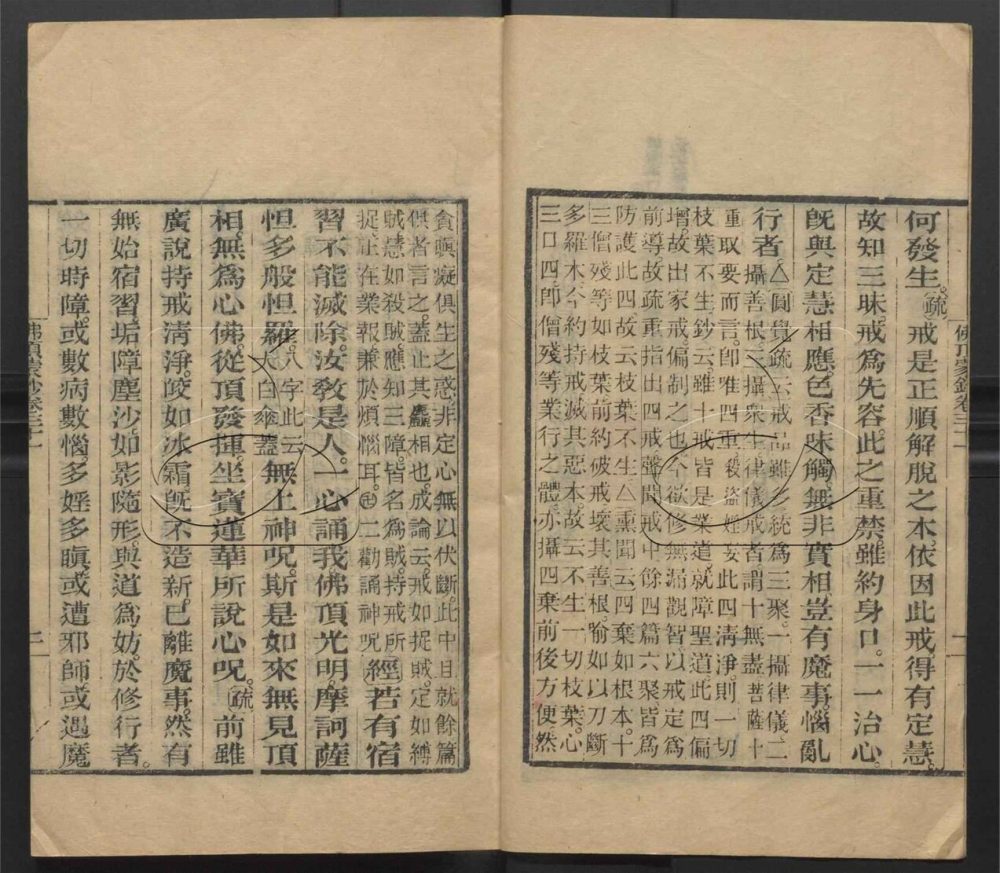 何發生。疏。戒是正順解脫之本依因此戒得有定慧。
故知三昧戒爲先容。此之重禁雖約身口。一一治心。
旣與定慧相應。色香味觸無非實相。豈有魔事。惱亂
行者
△圓覺疏云戒品雖多統爲三聚。一攝律儀二
攝善根。三攝衆生。律儀戒者。謂十無盡菩薩十
重取要而言。卽唯四重。殺盜婬妄此四淸淨。則一切
枝葉不生。鈔云。雖十戒皆是業道。就障聖道。此四偏
增。故出家戒。偏制之也。今欲修無漏觀智。以戒定爲
前導。故疏重指出四戒。聲聞戒中餘四篇六聚皆爲
防護此四。故云枝葉不生△熏聞云。四棄如根本。十
三僧殘等如枝葉。前約破戒壞其善根。喻如以刀斷
多羅木。今約持戒滅其惡本。故云不生一切枝葉。心
三口四。卽僧殘等業行之體。亦攝四棄前後方便。然
貪瞋癡俱生之惑。非定心無以伏斷。此中且就餘篇
俱者言之。蓋止其麤相也。成論云。戒如捉賊。定如縛
賊。慧如殺賊。應知三障皆名爲賊。持戒所
捉止在業報兼於煩惱耳。二勸誦神呪
經若有宿
習不能滅除。汝敎是人。一心誦我佛頂光明。摩訶薩
怛多般怛羅。八字此云大白傘蓋無上神呪。斯是如來無見頂
相。無爲心佛。從頂發揮。坐寶蓮華所說心呪。疏前雖
廣說持戒淸淨。皎如冰霜旣不造新。已離魔事。然有
無始宿習。垢障塵沙。如影隨形。與道爲妨。於修行者。
一切時障。或數病數惱。多婬多瞋。或遭邪師。或遇魔
佛頂蒙鈔卷三十一
二
佛頂蒙鈔卷三十一